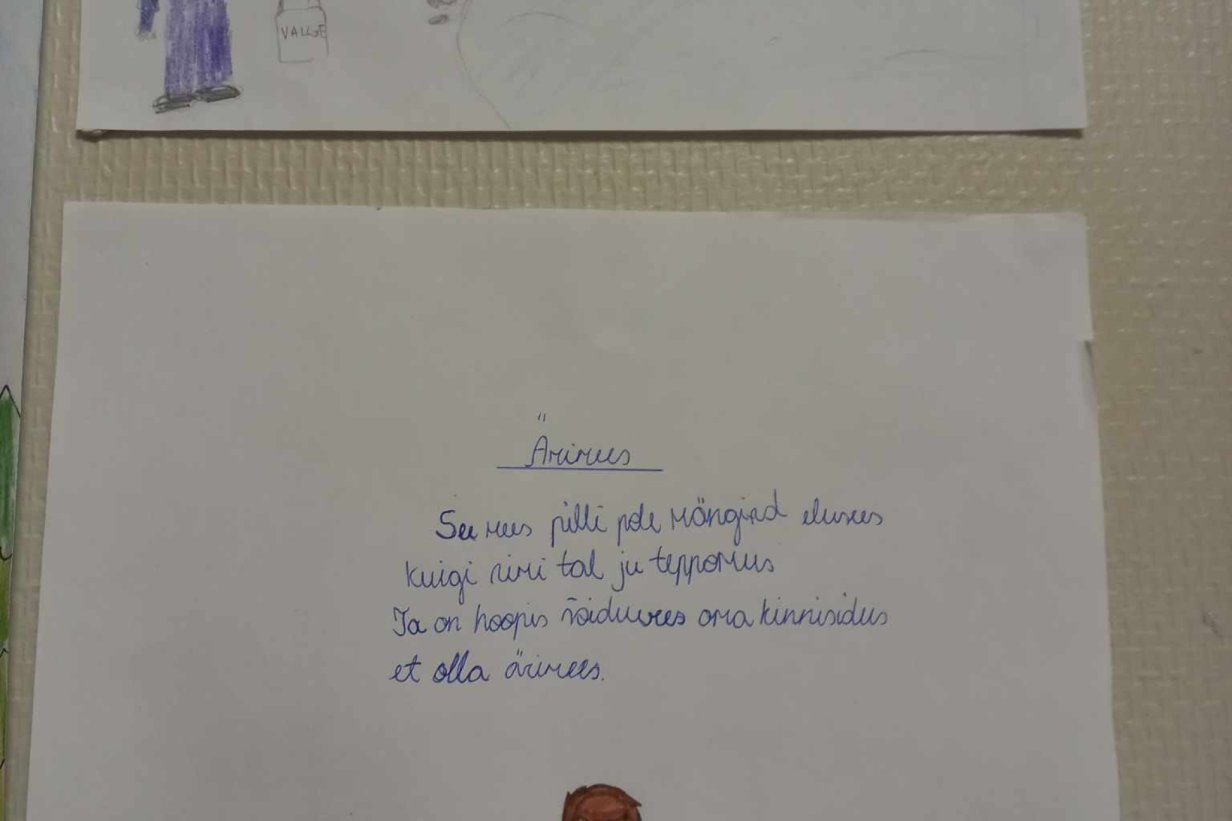 VALGE
Ärimees
See mees pilli pole mänginud elusees
kuigi nimi tal ju teppomus
Ta on hoopis võidumees oma kinnisidus
et olla ärimees.